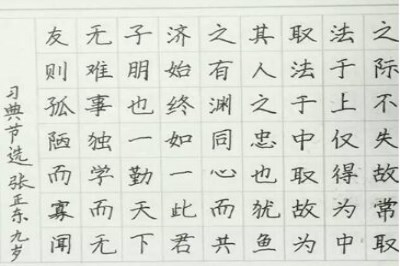 之际不失故常取
法于上仅得为中
取法于中取故为
其人之忠也犹鱼
之有渊同心而共
济始终如一此君
子明也一勤天下
无难事独学而无
友则孤陋而寡闻
习典节选 张正东 九岁